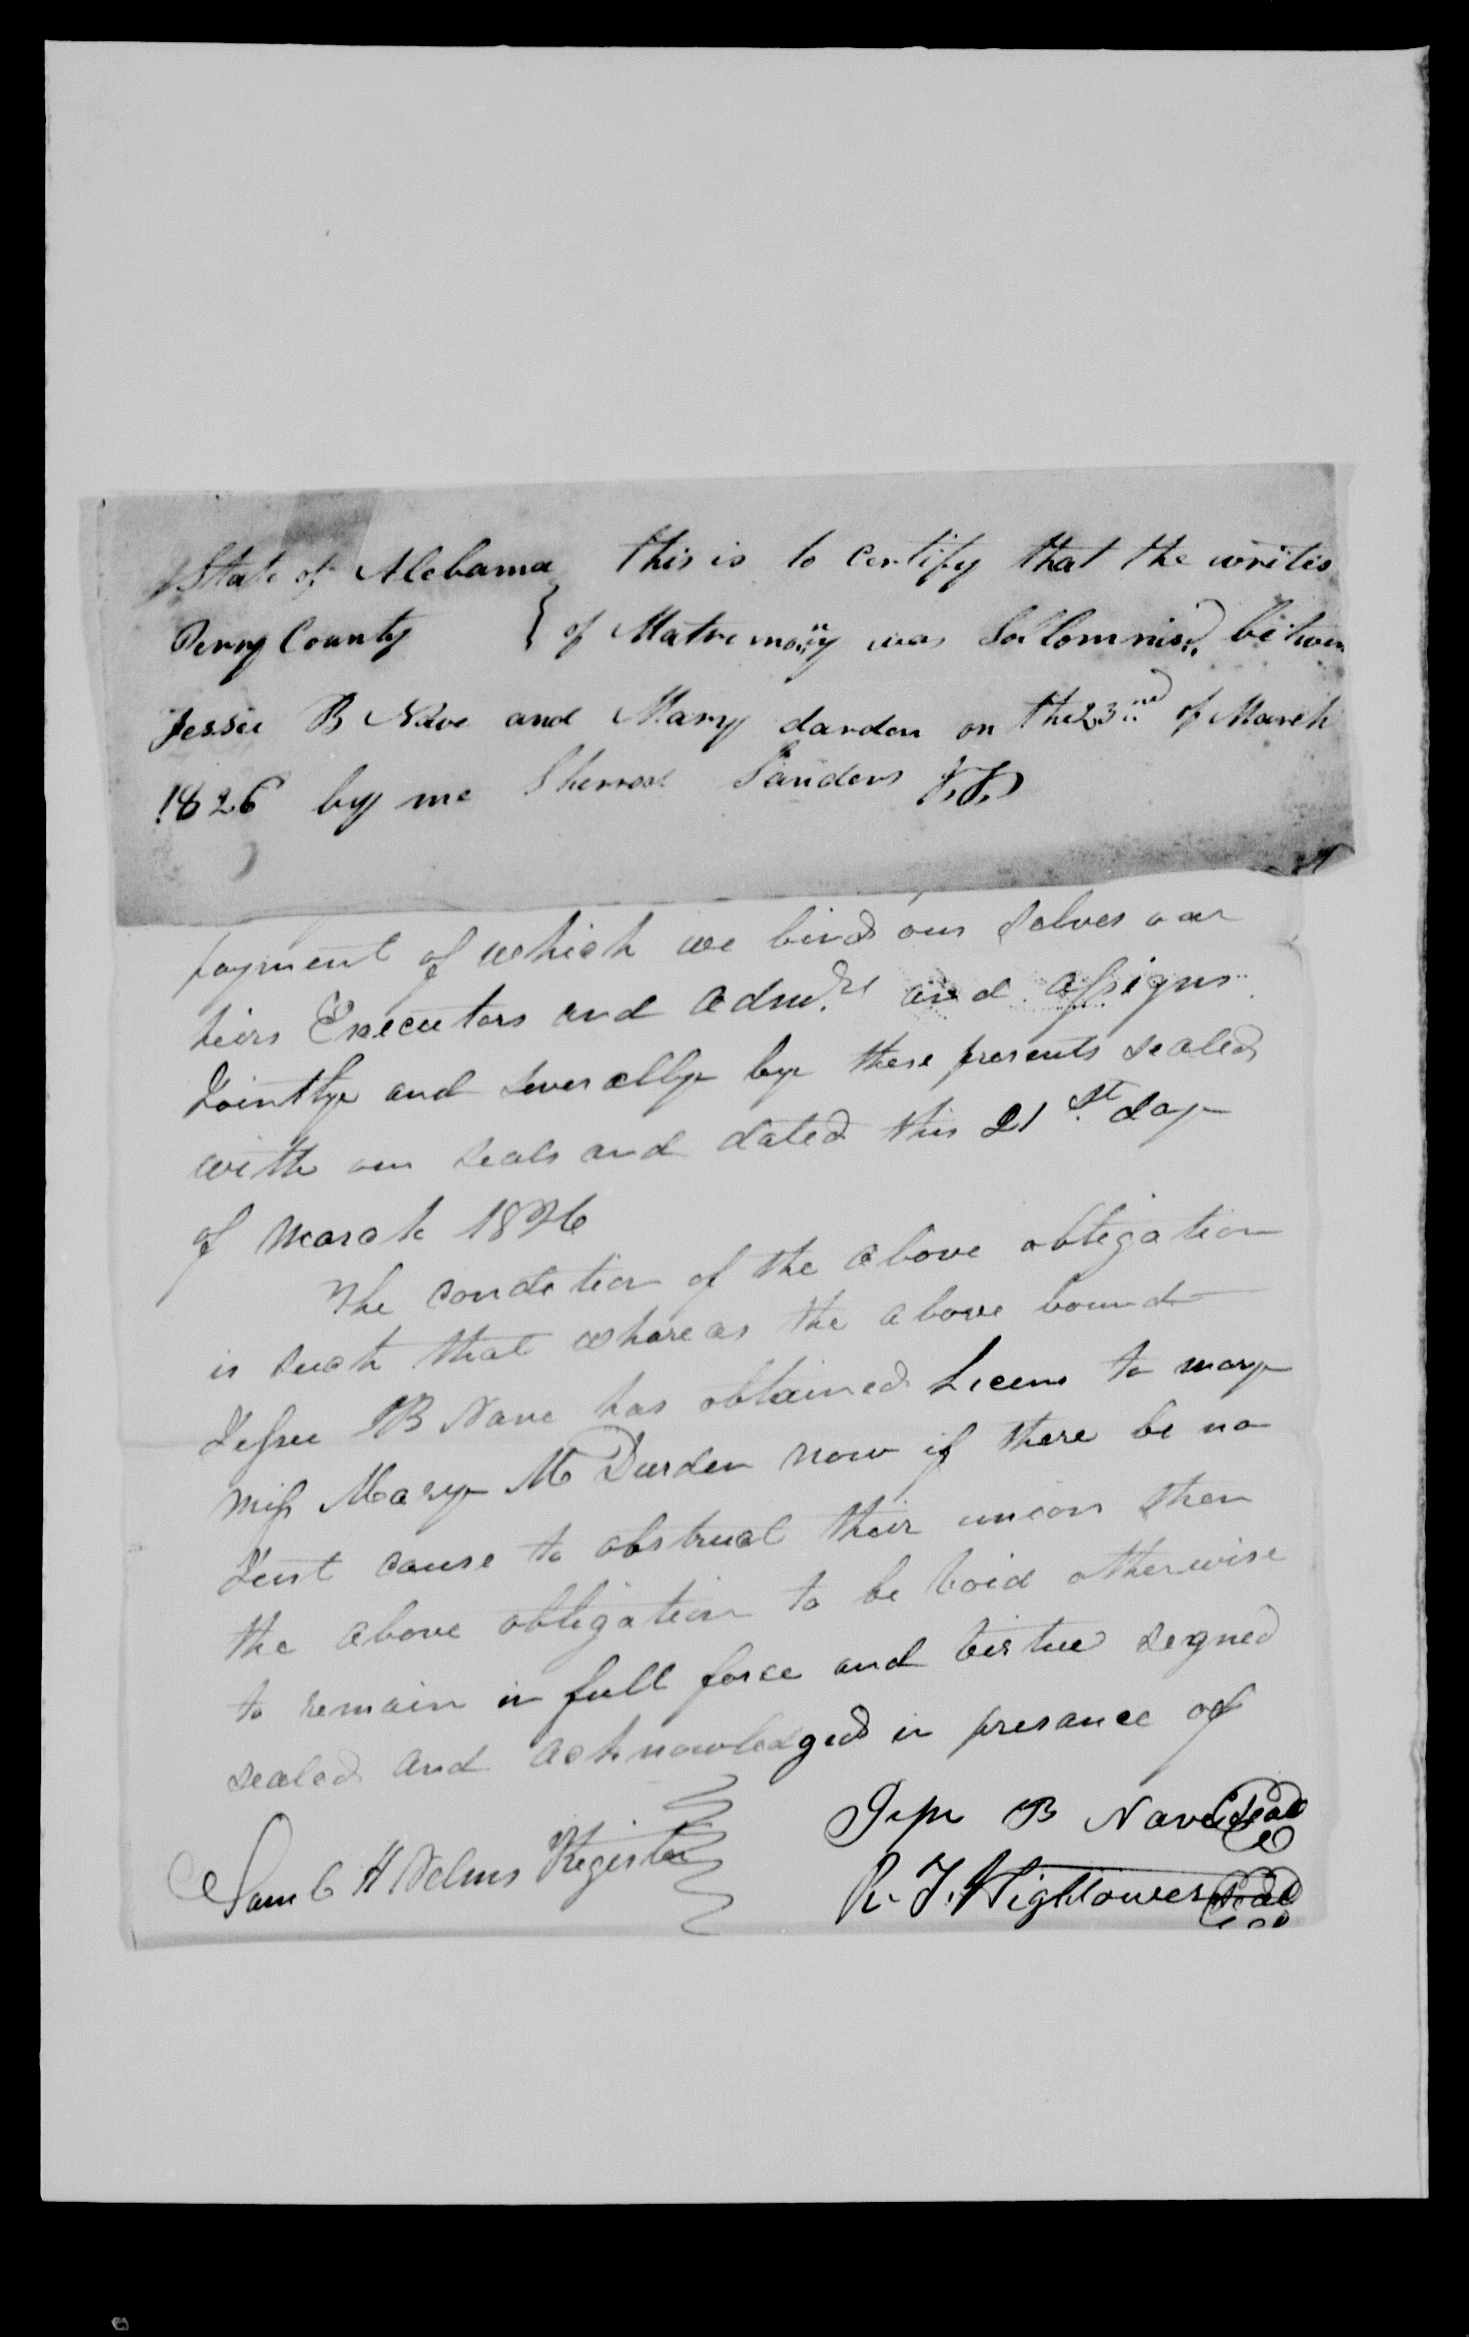 State of Alebama this is to certify that the writes
Perry County } of Matremony was Sollomnisd, betwen
Jessee B Nave and Mary darden on the 23nd of March
1826 by me Sherrod Sanders J.P.
payment of which we bind our selves our
heirs Executors and Admrs and assigns
Jointly and severally by these presents sealed
with our seals and dated this 21st day
of March 1826
The condition of the above obligation
is such that whereas the above bound
Jessee B Nave has obtained Licens to mary
miss Mary M Durden now if there be no
Just cause to obstruct their union then
the above obligation to be void otherwise
to remain in full force and virtue signed
sealed and acknowledged in presance of
Jesse B Nave Seal
Saml H Nelms Register
R. T. Hightower Seal